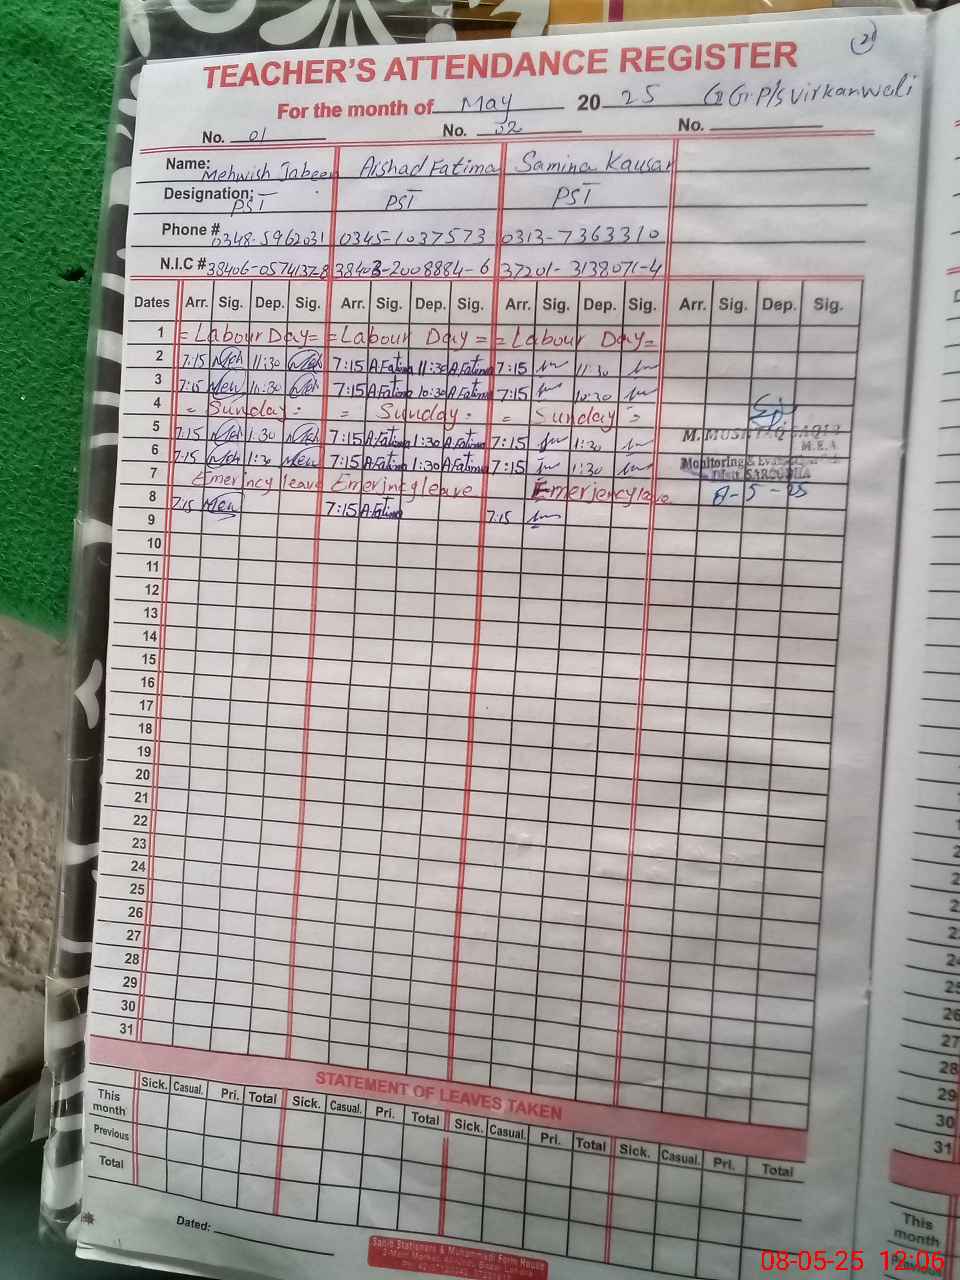 21
TEACHER'S ATTENDANCE REGISTER
For the month of May 2025 G G.P/s Virkanwali
No. 01 No. 02 No.
Name: Mehwish Jabeen Arshad Fatima Samina Kausar
Designation: PST PST PST
Phone # 0348-5962031 0345-1037573 0313-7363310
N.I.C # 38406-0574137-8 38403-2008884-6 37201-3139071-4
Dates Arr. Sig. Dep. Sig. Arr. Sig. Dep. Sig. Arr. Sig. Dep. Sig. Arr. Sig. Dep. Sig.
1 = Labour Day = = Labour Day = = Labour Day =
2 7:15 11:30 7:15 A.Fatima 11:30 A.Fatima 7:15 11:30
3 7:15 Meh 10:30 7:15 A.Fatima 10:30 A.Fatima 7:15 10:30
4 = Sunday = = Sunday = = Sunday =
5 7:15 1:30 7:15 A.Fatima 1:30 A.Fatima 7:15 1:30 M. MUSHTAQ
M.E.A
6 7:15 1:30 7:15 A.Fatima 1:30 A.Fatima 7:15 1:30 Monitoring &
7 Emerincy leave Emerincy leave Emerjency leave Distt. SARGODHA
8 7:15 7:15 A.Fatima 7:15 8-5-25
9
10
11
12
13
14
15
16
17
18
19
20
21
22
23
24
25
26
27
28
29
30
31
STATEMENT OF LEAVES TAKEN
Sick. Casual. Pri. Total Sick. Casual. Pri. Total Sick. Casual. Pri. Total Sick. Casual. Pri. Total
This month
Previous
Total
Dated:
Sahib Stationers & Muhammadi Form House
23
24
25
26
27
28
29
30
31
This month
Previous
08-05-25 12:06